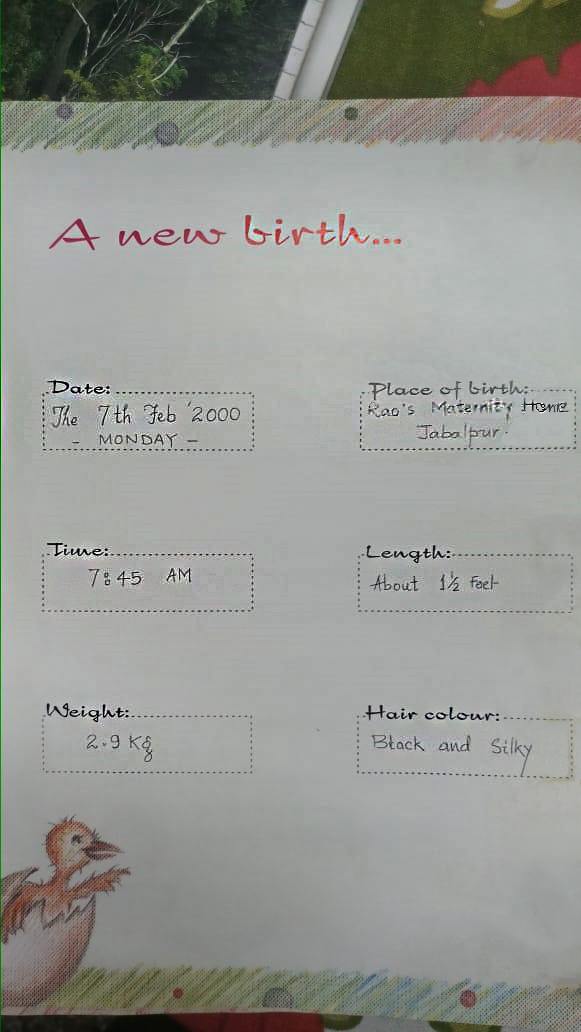 A new birth...
Date:
The 7th Feb '2000
- MONDAY -
Place of birth:
Rao's Maternity Home
Jabalpur.
Time:
7:45 AM
Length:
About 1½ Feet
Weight:
2.9 Kg
Hair colour:
Black and Silky